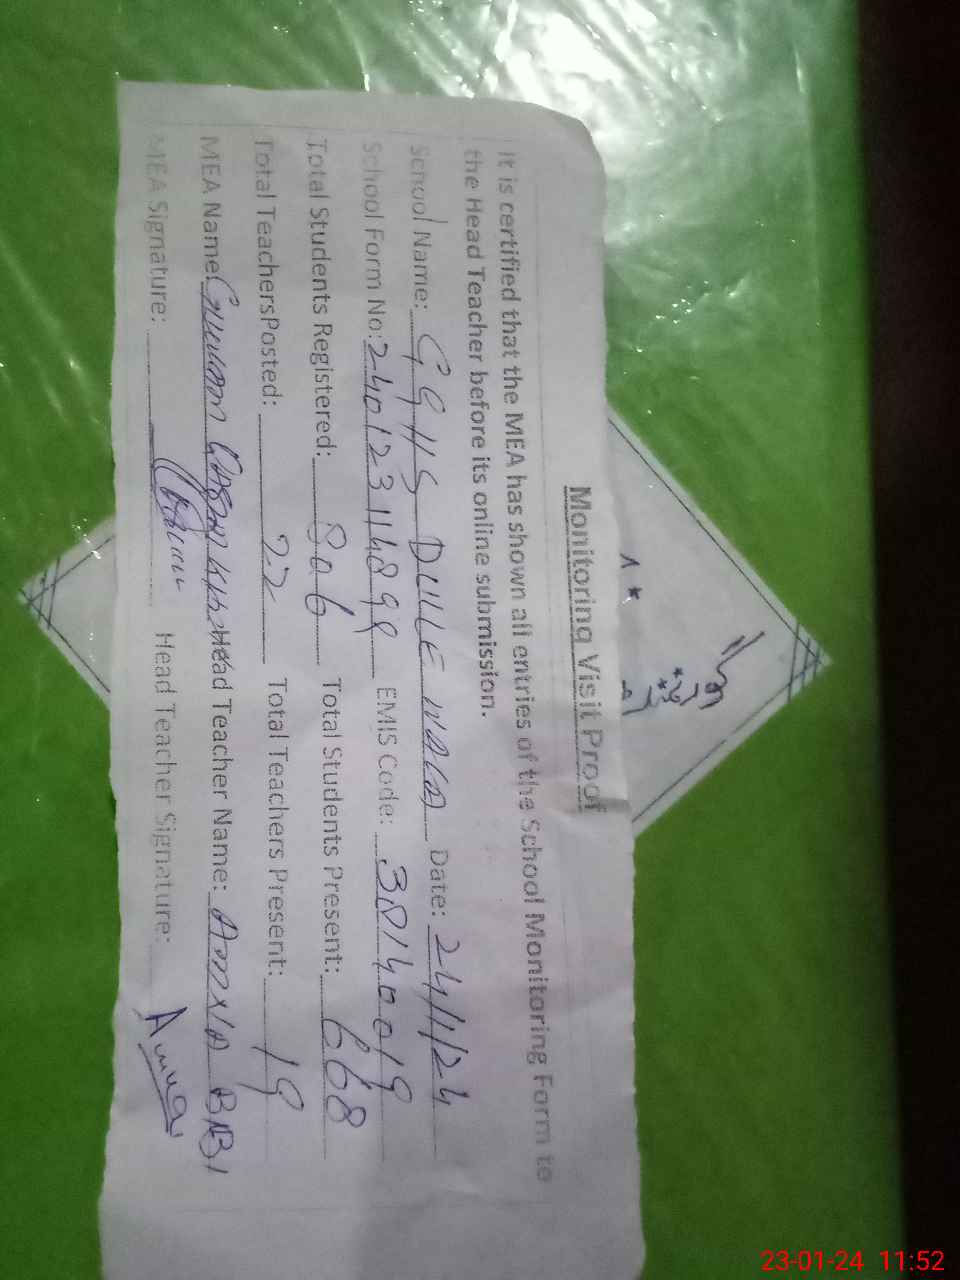 Monitoring Visit Proof
It is certified that the MEA has shown all entries of the School Monitoring Form to
the Head Teacher before its online submission.
School Name: GGHS DULLE WALA Date: 24/1/24
School Form No: EMIS Code: 38140019
Total Students Registered: 806 Total Students Present: 668
Total TeachersPosted: 22 Total Teachers Present: 19
MEA Name: Head Teacher Name: BiBi
MEA Signature: Head Teacher Signature:
23-01-24 11:52